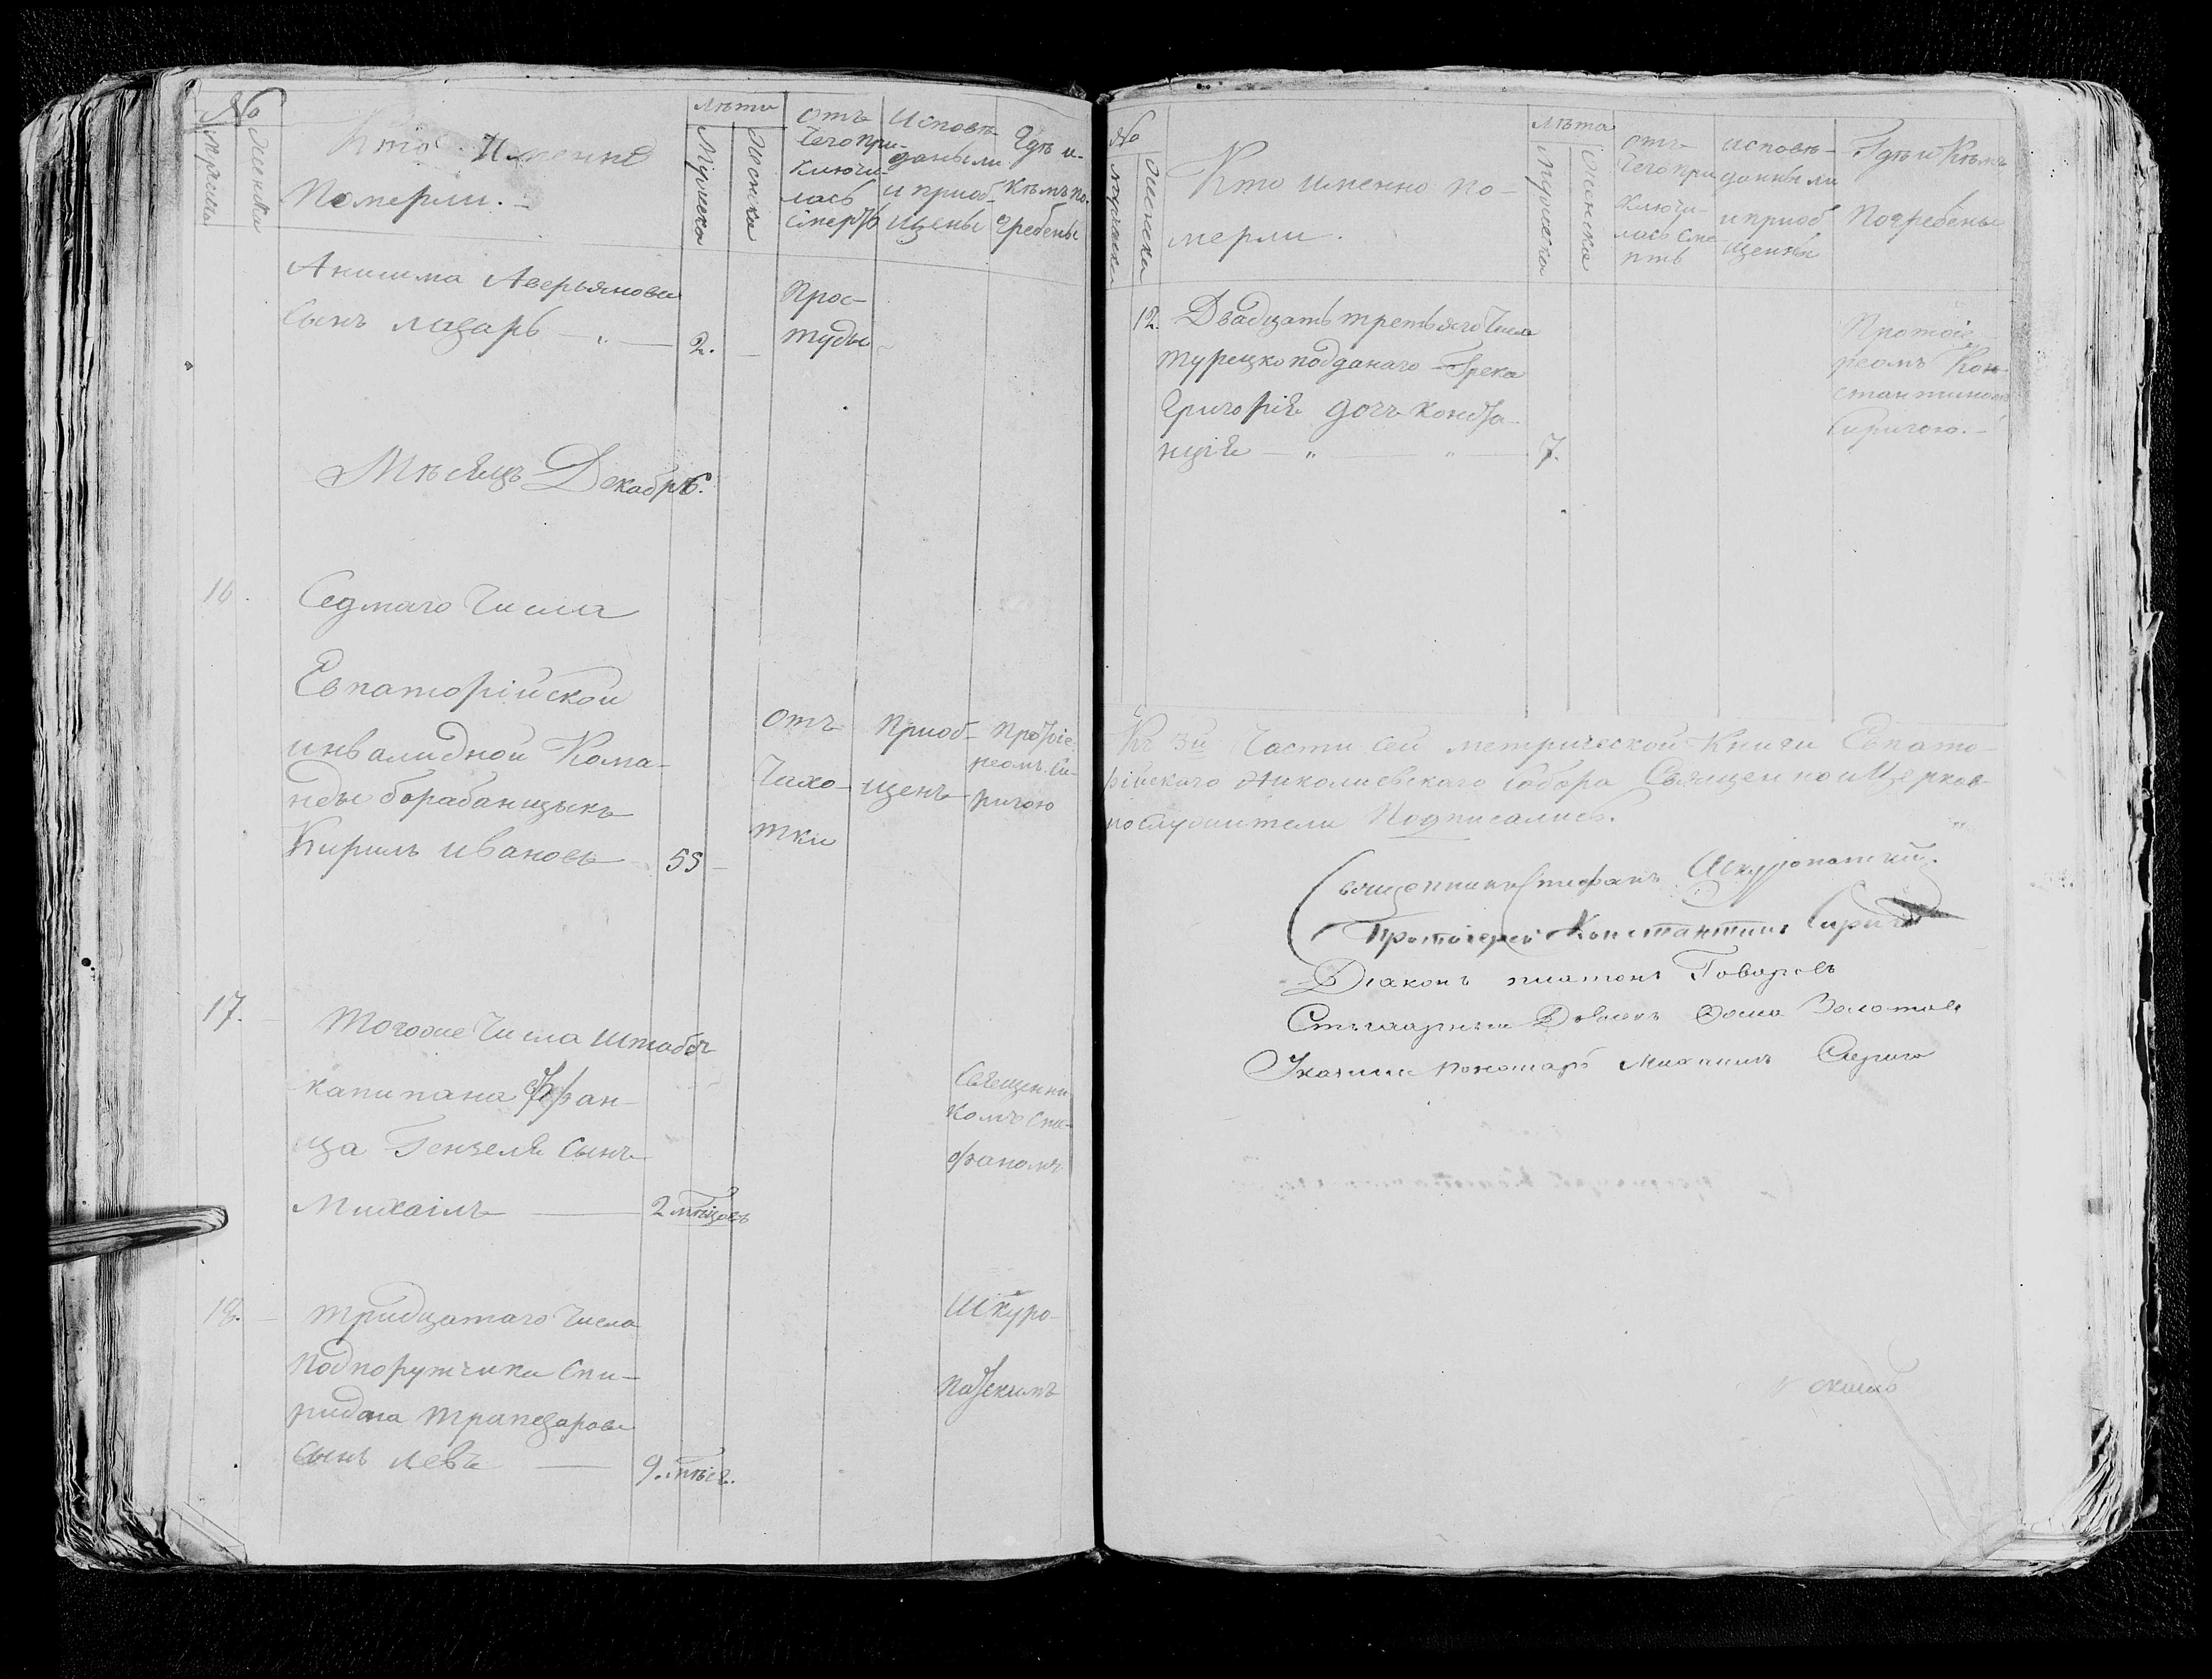 №
Мужска
Женска
Кто Именно
Померли.
Лѣта
Мужска
Женска
Отъ
Чего при-
ключи-
лась
Смерть
Исповѣ-
даны ли
и приоб-
щены
Гдѣ и
Кѣмъ по-
гребены
Анисима Аверьянова
Сынъ Лазарь 2.
Прос-
туды
Мѣсяцъ Декабрь.
16.
Седмаго Числа
Евпаторійской
инвалидной Кома-
нды борабанщыкъ
Кирилъ Ивановъ 55
Отъ
Чахо-
тки
Приоб-
щенъ
Протоіе-
реомъ Си-
ригою
17.
Тогоже Числа Штабсъ
капитана Фран-
ца Гензеля Сынъ
Михаілъ 2 мѣсяцовъ
Священни
комъ Сте-
фаномъ
18.
Тридцатаго Числа
Подпорутчика Спи-
ридона
Сынъ Левъ 9. мѣся.
Шкуро-
патскимъ
№
Мужска
Женска
Кто именно по-
мерли.
Лѣта
Мужска
Женска
Отъ
Чего при
ключи-
лась сме
рть
Исповѣ-
данны ли
и приоб
щенны
Гдѣ и Кѣмъ
Погребены
12. Двадцать третьяго Числа
Турецкоподданаго Грека
Григорія дочь Конста-
нція 7.
Протоіе
реомъ Кон-
стантиномъ
Сиригою.
Къ 3й Части сей метрической Книги Евпато-
рійскаго Николаевскаго Собора Священноицерков-
нослужители Подписались.
Священникъ Стефанъ Шкуропатскій.
Протоіерей Константинъ Сирига
Діаконъ Платонъ Говоровъ
Ѳома Золотов
Пономарь Михаилъ Сирига